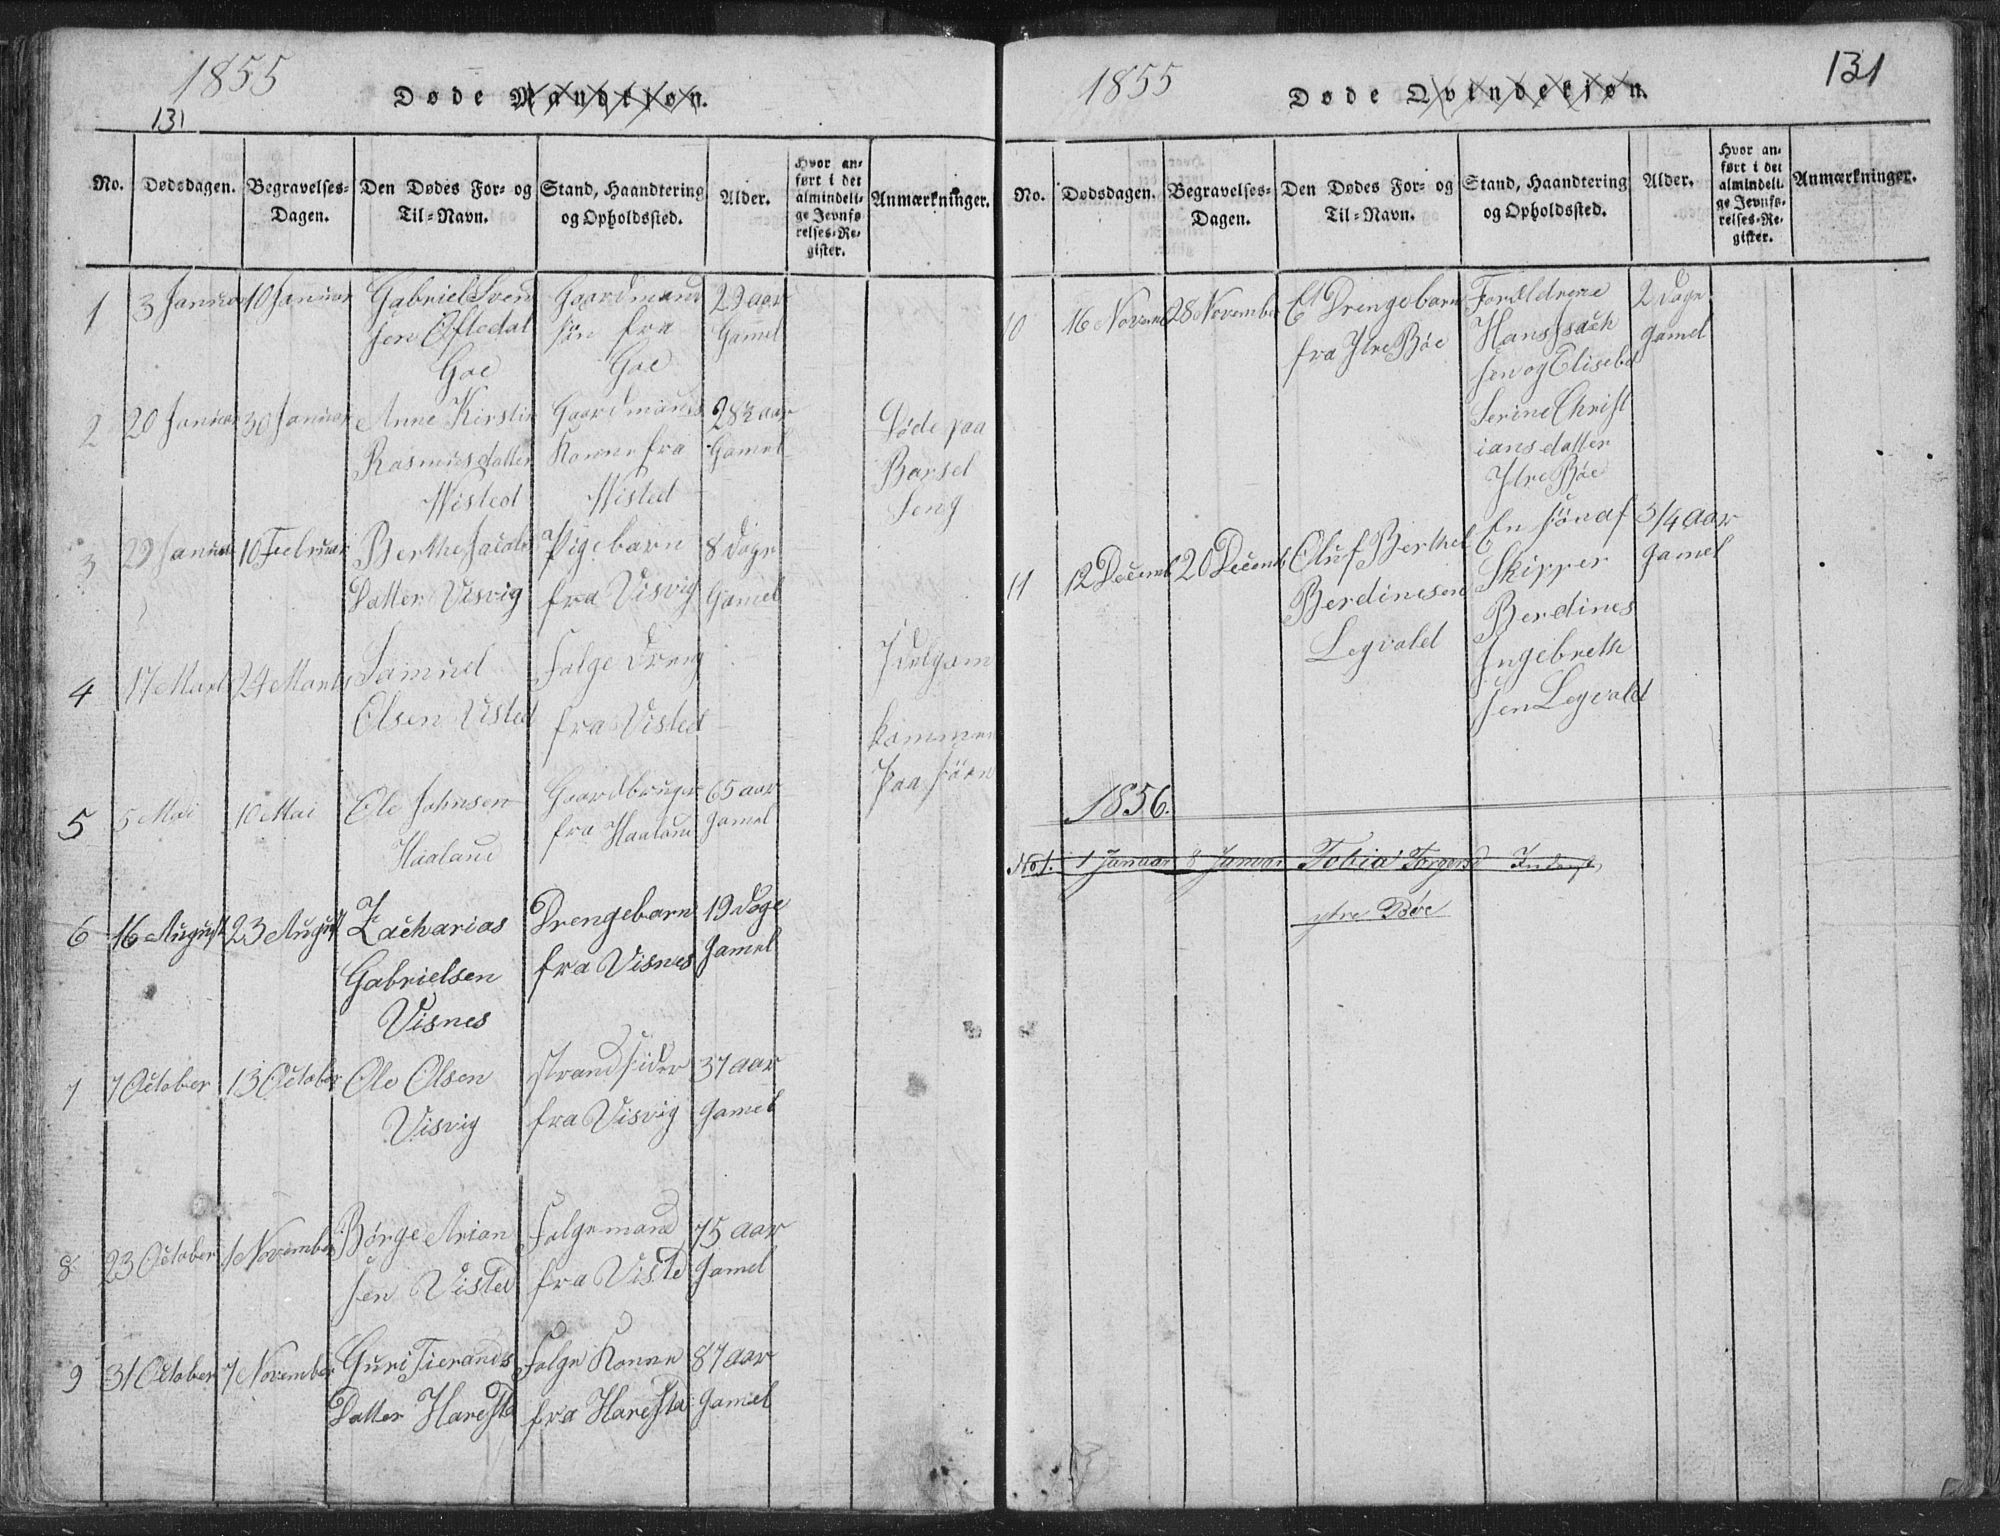 1855
131
Døde Mandkjøn.
No.
Dødsdagen.
Begravelses-
Dagen.
Den Dødes For- og
Til-Navn.
Stand, Haandtering
og Opholdssted.
Alder.
Hvor an-
ført i det
almindeli-
ge Jevnfø-
relses-Re-
gister.
Anmærkninger.
1
3 Januar
10 Januar
Gabriel Svend
sen Oftedal
Goe
Gaardmands
sön fra
Goe
29 aar
Gamel
2
20 Januar
30 Januar
Anne Kirstin
Rasmusdatter
Wisted
Gaardmands
Konne fra
Wisted
28½ aar
Gamel
Døde paa
Barsel
Seng
3
29 Januar
10 Februar
Berthe Jacobs
Datter Visvig
Pigebarn
fra Visvig
8 Dage
Gamel
4
17 Marts
24 Marts
Samuel
Olsen Visted
Folge Dreng
fra Visted
kommen
Paa söen
5
5 Mai
10 Mai
Ole Johnsen
Haaland
Gaardbruger
fra Haaland
65 aar
Gamel
6
16 August
23 August
Zacharias
Gabrielsen
Visnes
Drengebarn
fra Visnes
19 Dage
Gamel
7
7 October
13 October
Ole Olsen
Visvig
Strandsider
fra Visvig
37 aar
Gamel
8
23 October
1 November
Børge Arian
sen Visted
Folgemand
fra Viste
75 aar
Gamel
9
31 October
7 November
Guri Tierands
Datter Haresta
Folge Konne
fra Haresta
87 aar
Gamel
1855
131
Døde Qvindekjøn.
No.
Dødsdagen.
Begravelses-
Dagen.
Den Dødes For- og
Til-Navn.
Stand, Haandtering
og Opholdssted.
Alder.
Hvor an-
ført i det
almindeli-
ge Jevnfø-
relses-Re-
gister.
Anmærkninger.
10
16 Novem
28 November
Et Drengebarn
fra Ytre Bøe
Forældrene
Hans Isach
sen og Elisebet
Serine Christ
iansdatter
Ytre Bøe
2 Dage
Gamel
11
12 Decemb
20 Decemb
Oluf Berthel
Berdinesen
Legvold
En sön af
Skipper
Berdines
Ingebreth
sen Legvold
3/4 aar
Gamel
1856.
No 1.
1 Januar
8 Januar
Tobia Torgersd
ytre Bøe